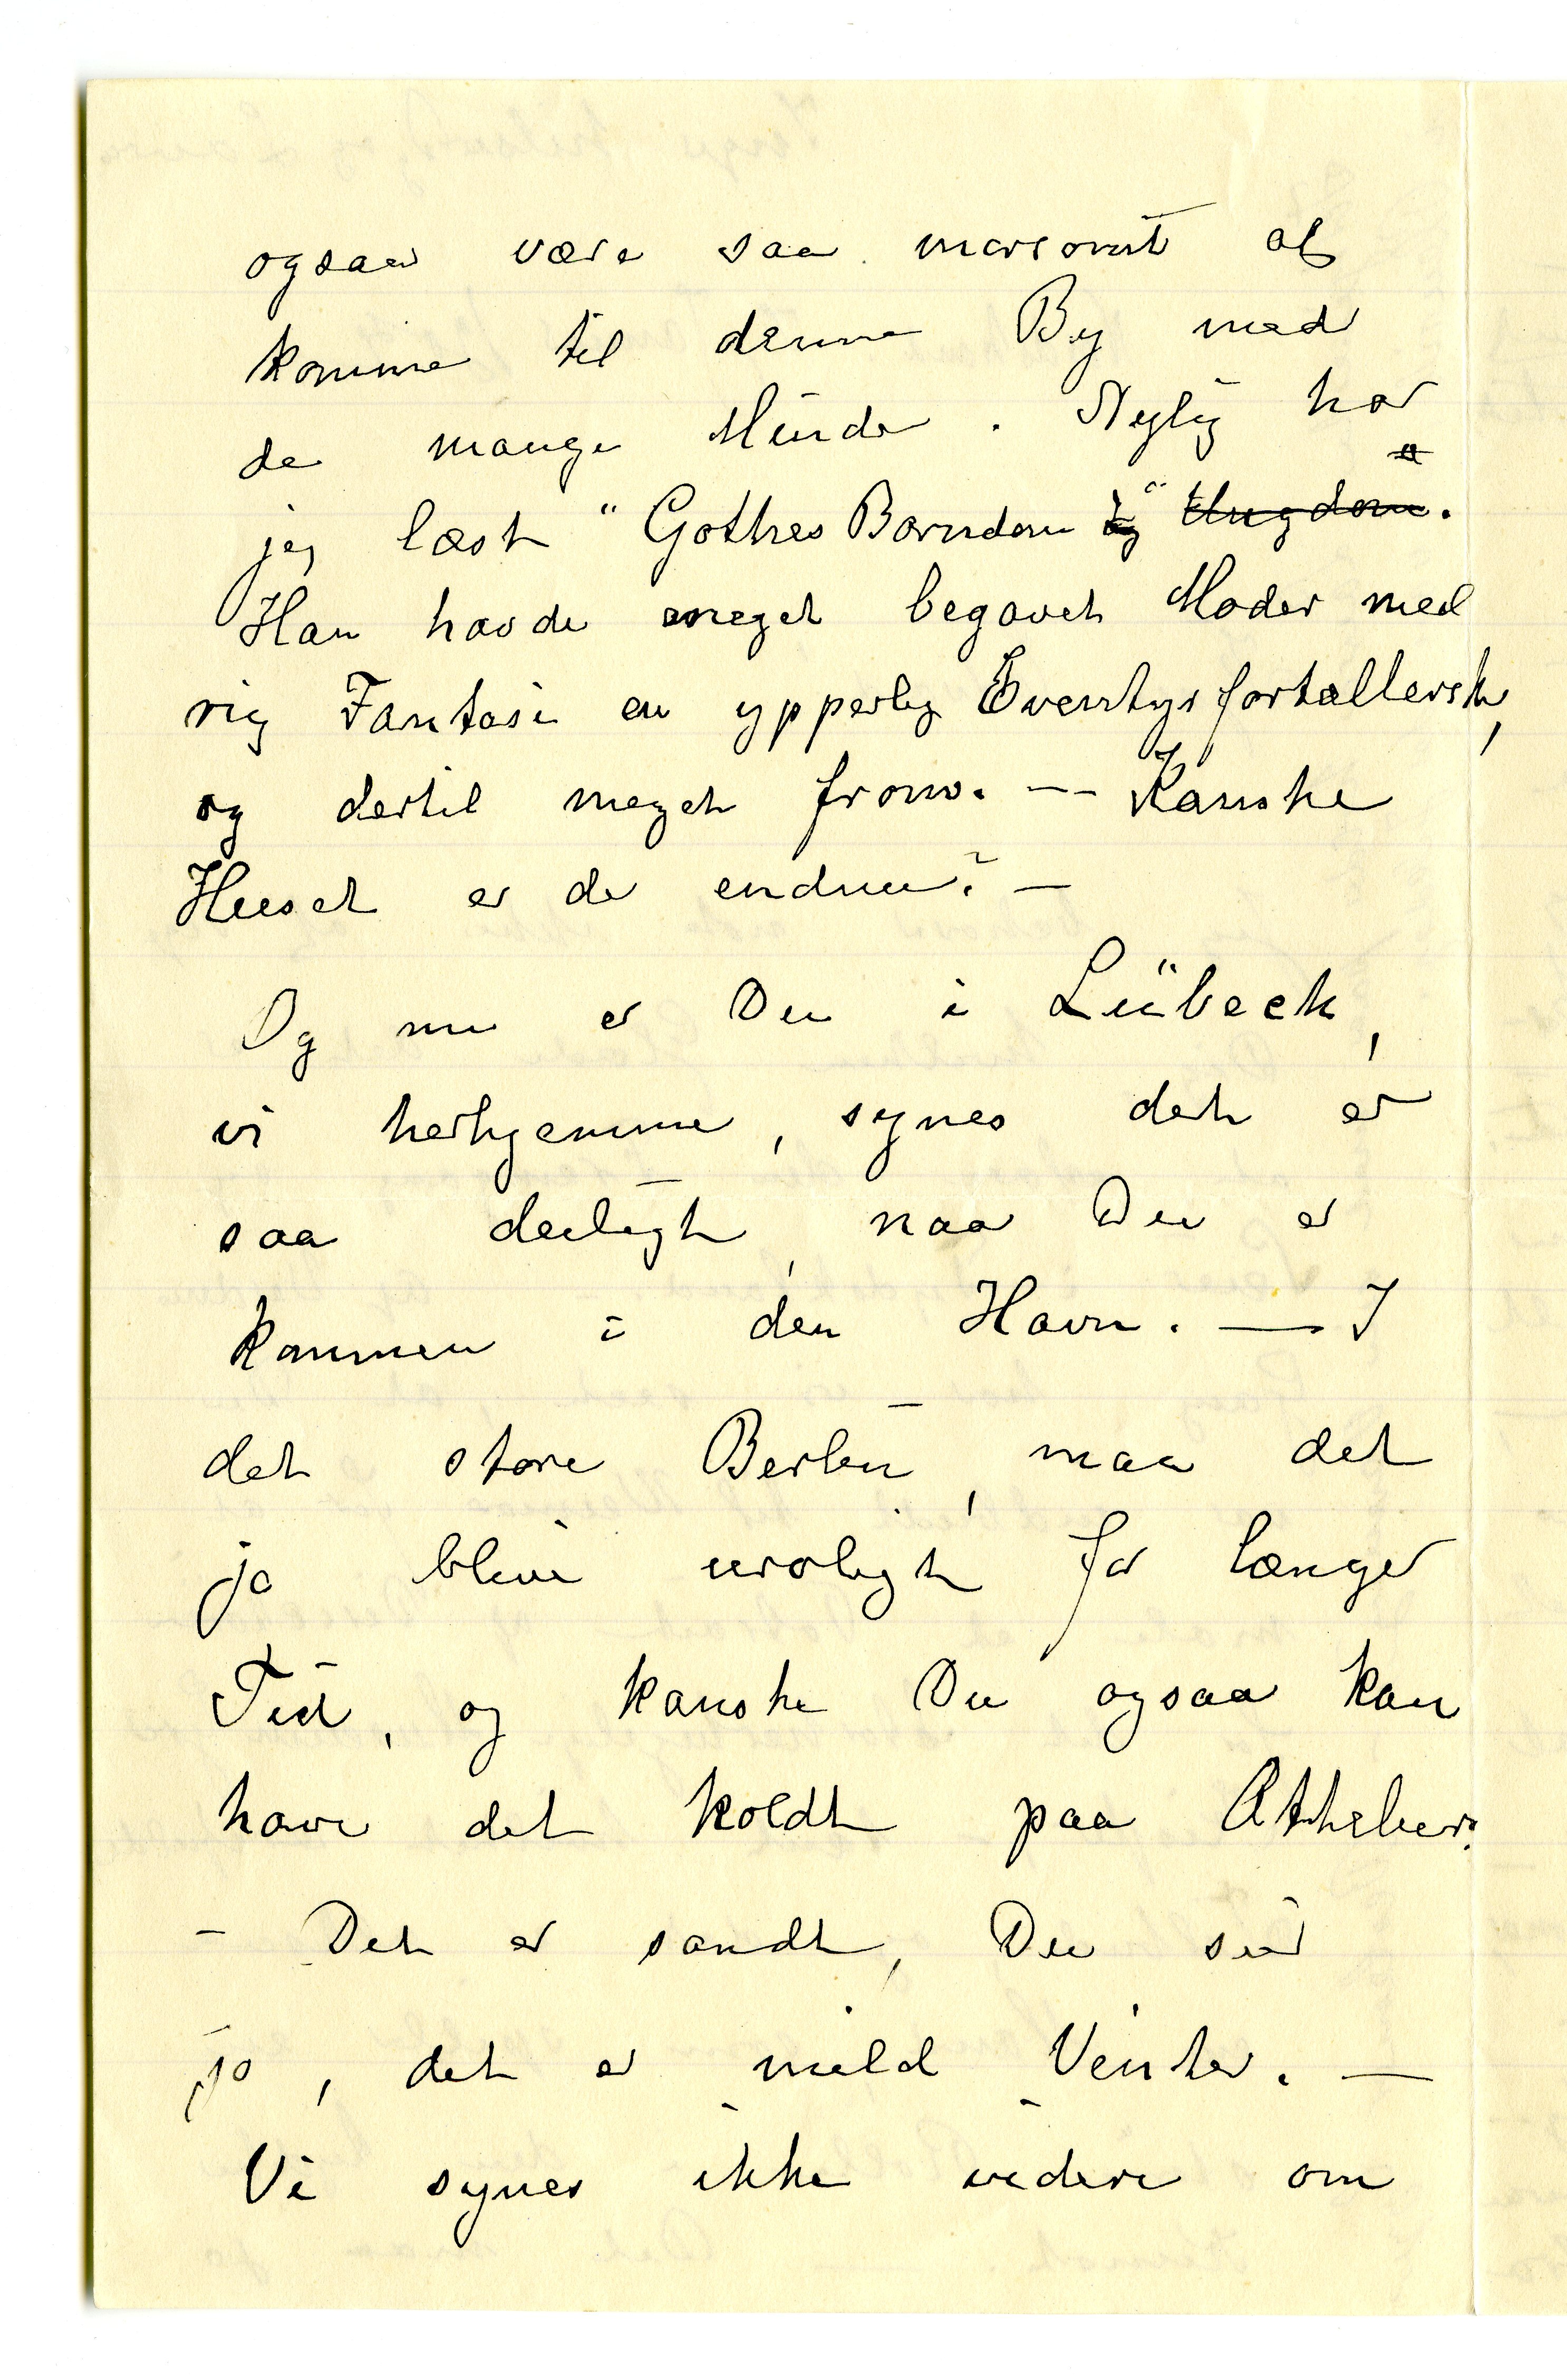 ogsaa være saa morsomt at
komme til denne By med
de mange Minder. Nylig har
jeg læst "Gothes Barndom og" Ungdom.
Han havde meget begavet Moder med
rig Fantasi en ypperlig Eventyrfortællersk,
og dertil meget from. -- Kanske
Huset er der endnu? —
Og nu er Du i Lübeck,
vi herhjemme, synes det er
saa deiligt, naar Du er
kommen i den Havn. — I
det store Berlin, maa det
ja blive uroligt for længer
Tid, og kanske Du ogsaa kan
have det koldt paa Atteliers.
- Det er sandt, Du sier
jo, det er mild Vinter. —
Vi synes ikke videre om